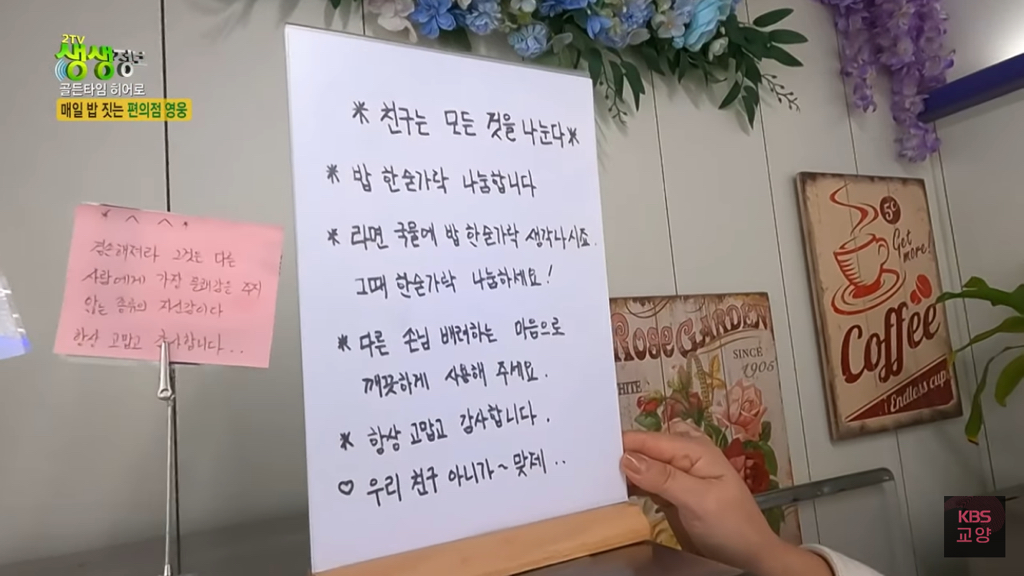 2TV
생생정보
골든타임 히어로
매일 밥 짓는 편의점 영웅
* 친구는 모든 것을 나눈다 *
* 밥 한숟가락 나눔합니다
* 라면 국물에 밥 한숟가락 생각나시죠.
그때 한숟가락 나눔하세요!
* 다른 손님 배려하는 마음으로
깨끗하게 사용해 주세요.
* 항상 고맙고 감사합니다.
♡ 우리 친구 아니가~ 맞제..
* ^ ^ *
겸손해져라 그것은 다른
사람에게 가장 불쾌감을 주지
않는 종류의 자신감이다
항상 고맙고 감사합니다...
ROSE GARDEN
SINCE
1906
WHITE
5¢
Get more!
Coffee
Endless cup
KBS
교양